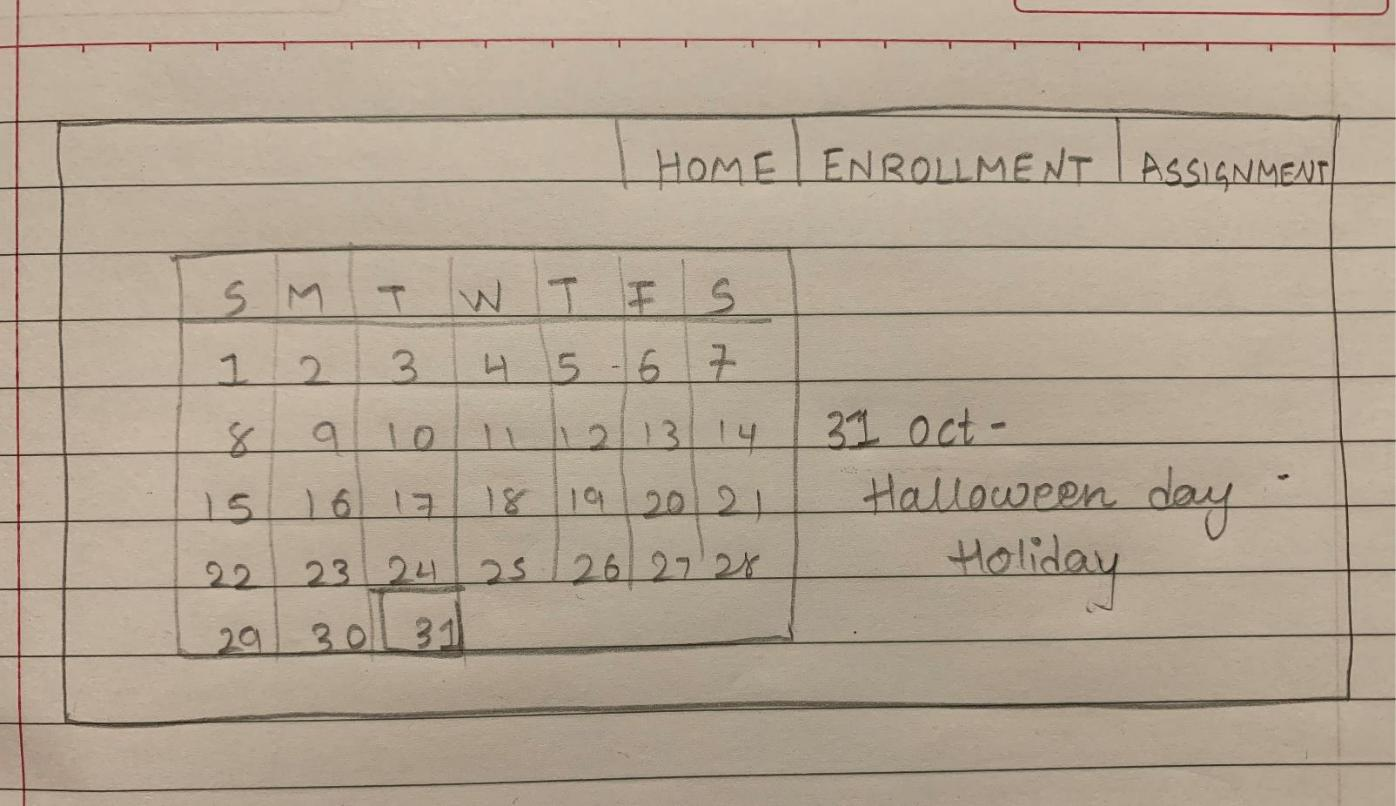 HOME ENROLLMENT ASSIGNMENT
S M T W T F S
1 2 3 4 5 6 7
8 9 10 11 12 13 14
15 16 17 18 19 20 21
22 23 24 25 26 27 28
29 30 31
31 Oct -
Halloween day
Holiday